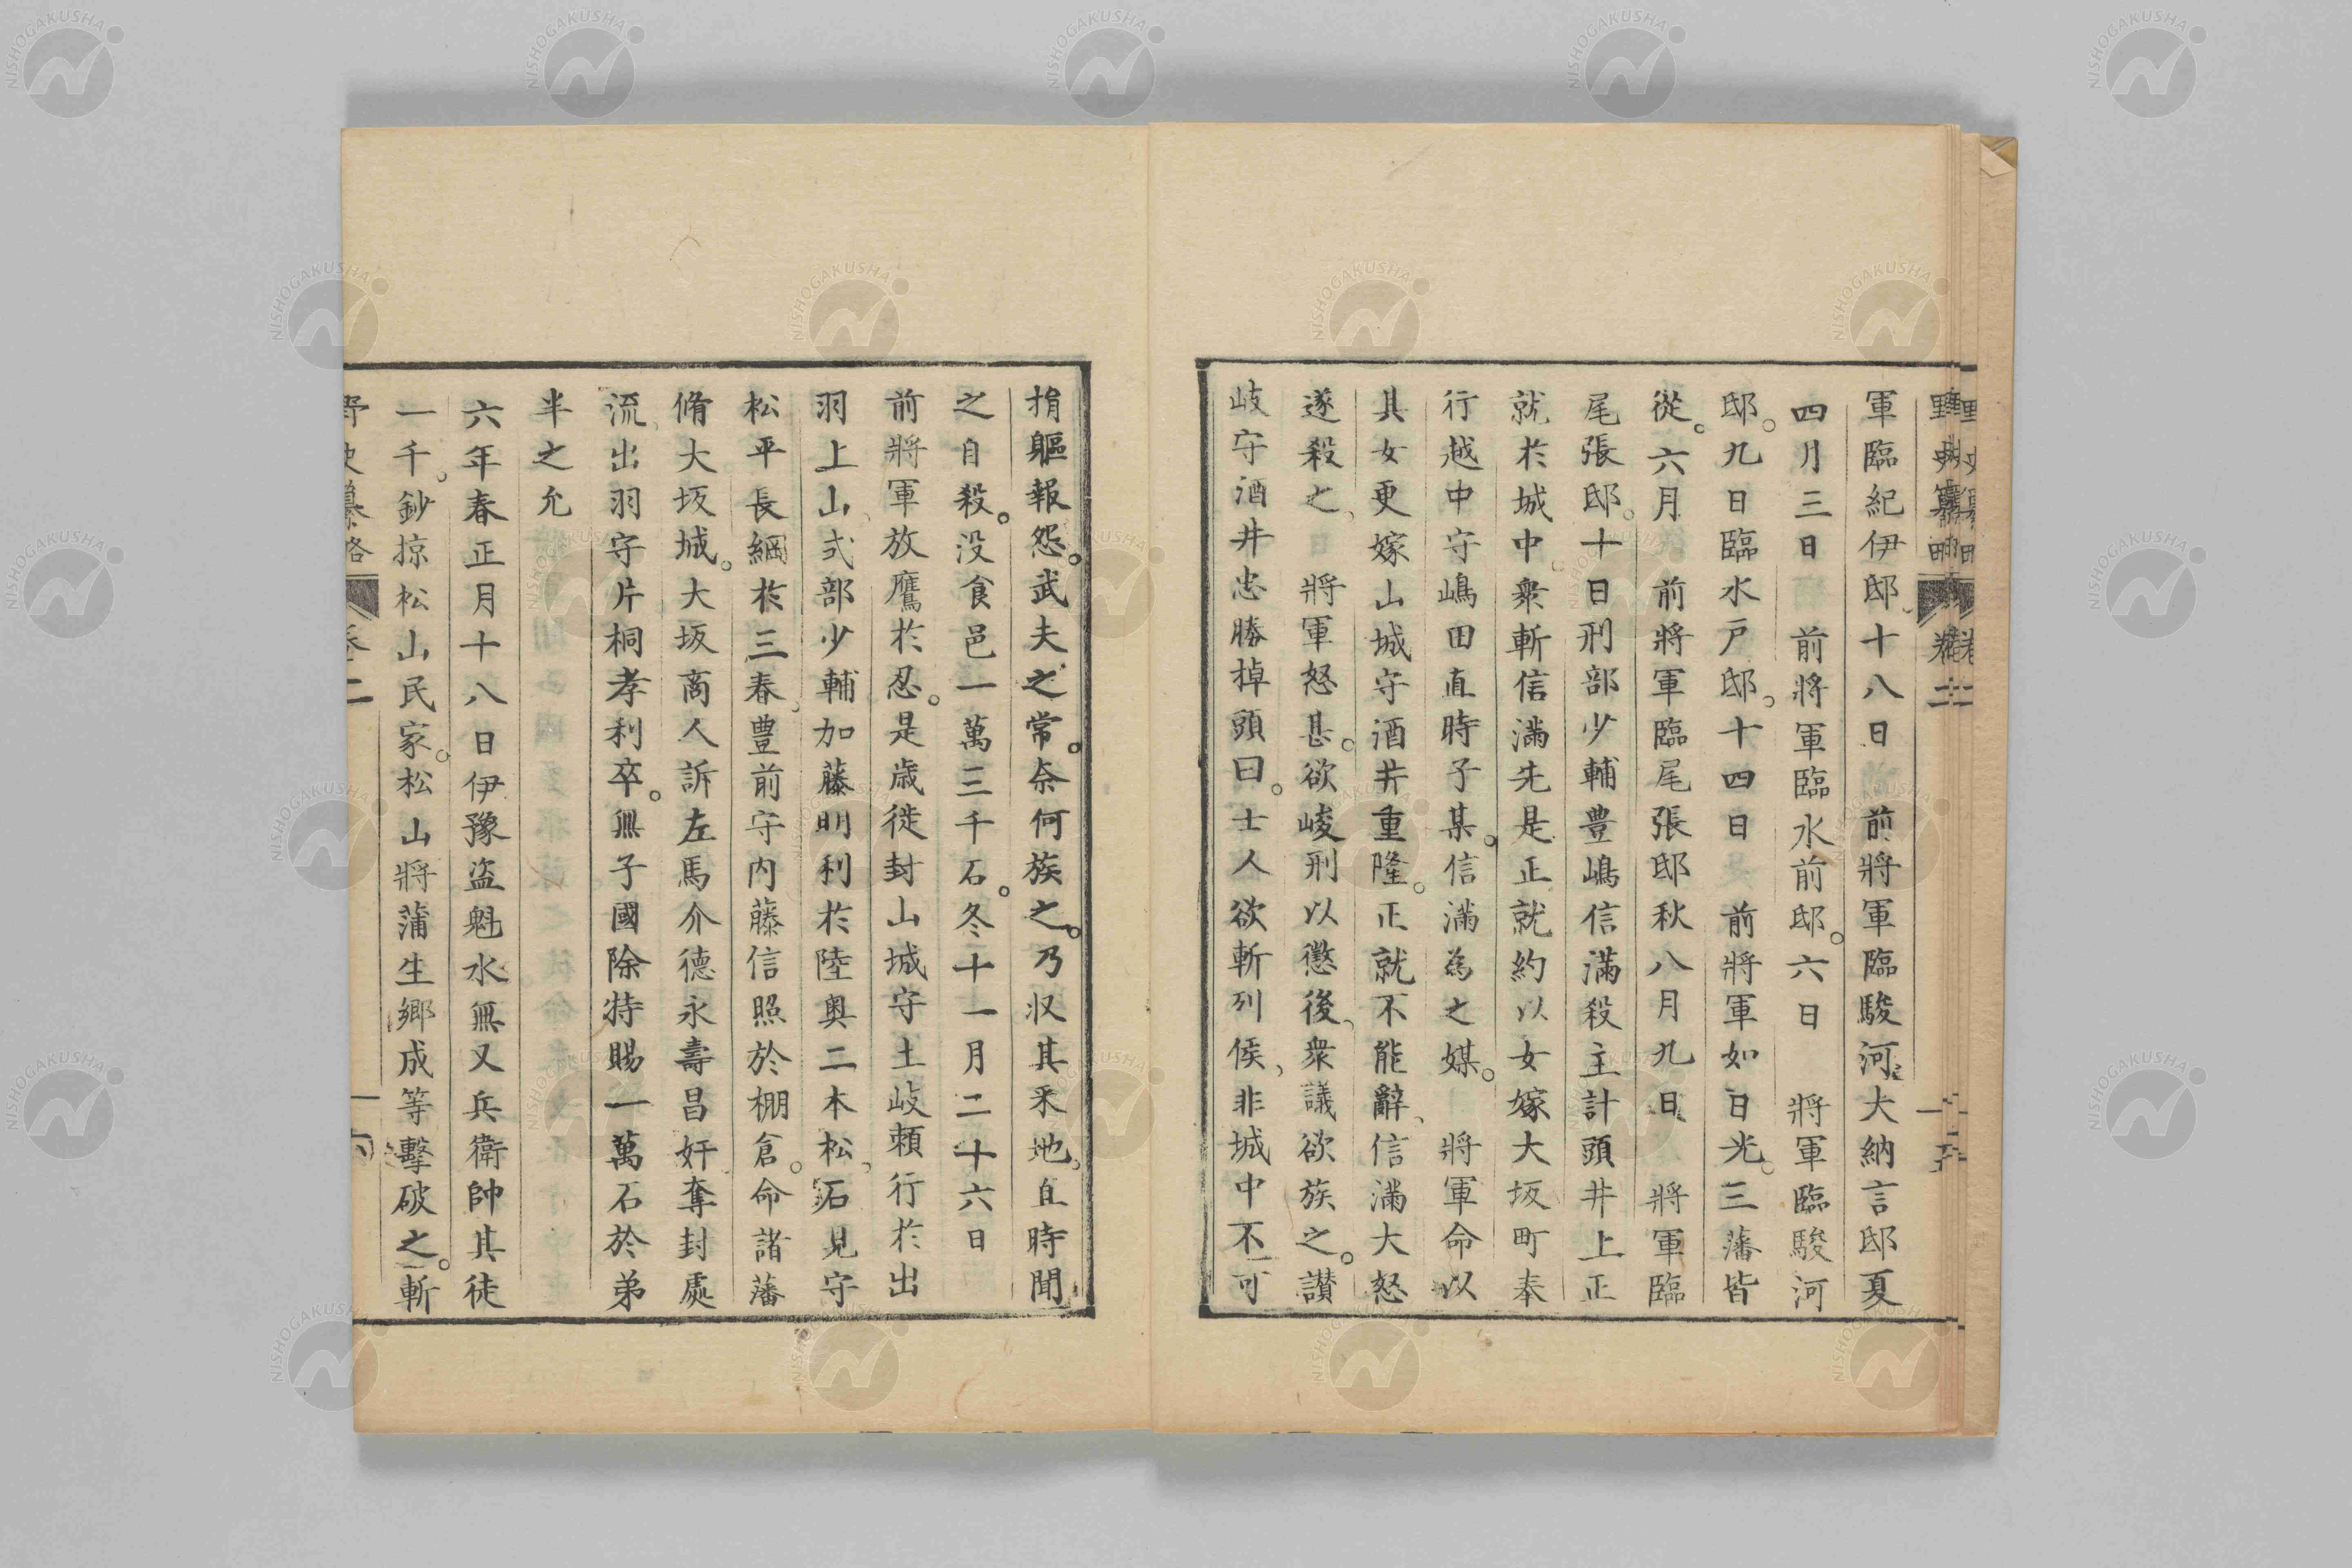 軍臨紀伊邸、十八日　前將軍臨駿河大納言邸夏
四月三日　前將軍臨水前邸。六日　將軍臨駿河
邸。九日臨水戸邸。十四日　前將軍如日光。三藩皆
從。六月　前將軍臨尾張邸秋八月九日　將軍臨
尾張邸。十日刑部少輔豊嶋信滿殺主計頭井上正
就於城中。衆斬信滿先是正就約以女嫁大坂町奉
行越中守嶋田直時子某。信滿為之媒。將軍命以
其女更嫁山城守酒井重隆。正就不能辭、信滿大怒
遂殺之、　將軍怒甚。欲峻刑以懲後、衆議欲族之。讃
岐守酒井忠勝掉頭曰。士人欲斬列侯、非城中不可
捐軀報怨。武夫之常。奈何族之。乃収其釆地、直時聞
之自殺。没食邑一萬三千石。冬十一月二十六日
前將軍放鷹於忍。是歳徙封山城守土岐頼行於出
羽上山、式部少輔加藤明利於陸奥二本松、石見守
松平長綱於三春、豊前守内藤信照於棚倉。命諸藩
脩大坂城。大坂商人訴左馬介德永壽昌奸奪封處
流、出羽守片桐孝利卒。無子國除特賜一萬石於弟
半之允
六年春正月十八日伊豫盗魁水無又兵衛帥其徒
一千。鈔掠松山民家。松山將蒲生郷成等擊破之。斬
野史纂略　卷二
NISHOGAKUSHA